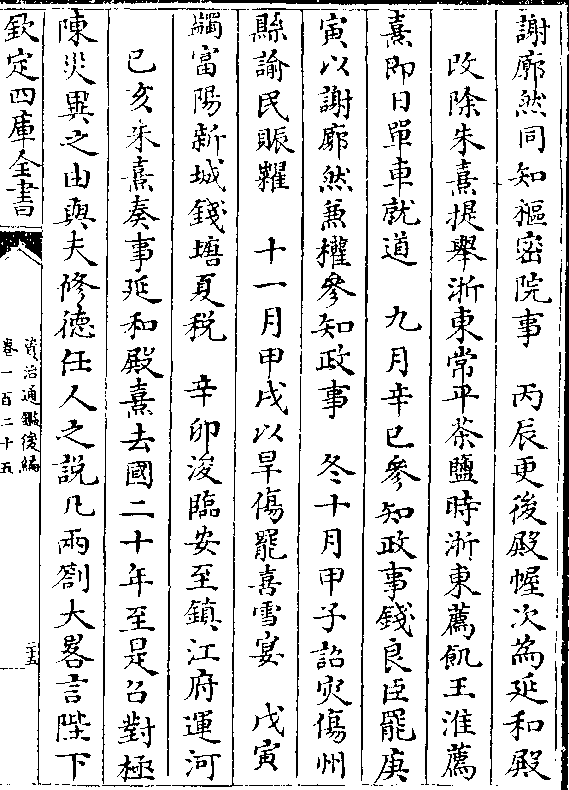 謝廓然同知樞密院事　丙辰更後殿幄次為延和殿
改除朱熹提舉浙東常平茶鹽時浙東薦飢王淮薦
熹即日單車就道　九月辛巳參知政事錢良臣罷庚
寅以謝廓然兼權參知政事　冬十月甲子詔灾傷州
縣諭民賑糶　十一月甲戌以旱傷罷喜雪宴　戊寅
蠲富陽新城錢塘夏税　辛卯浚臨安至鎮江府運河
已亥朱熹奏事延和殿熹去國二十年至是召對極
陳災異之由與夫修德任人之説凡兩劄大畧言陛下
欽定四庫全書
資治通鑑後編
卷一百二十五
二十五